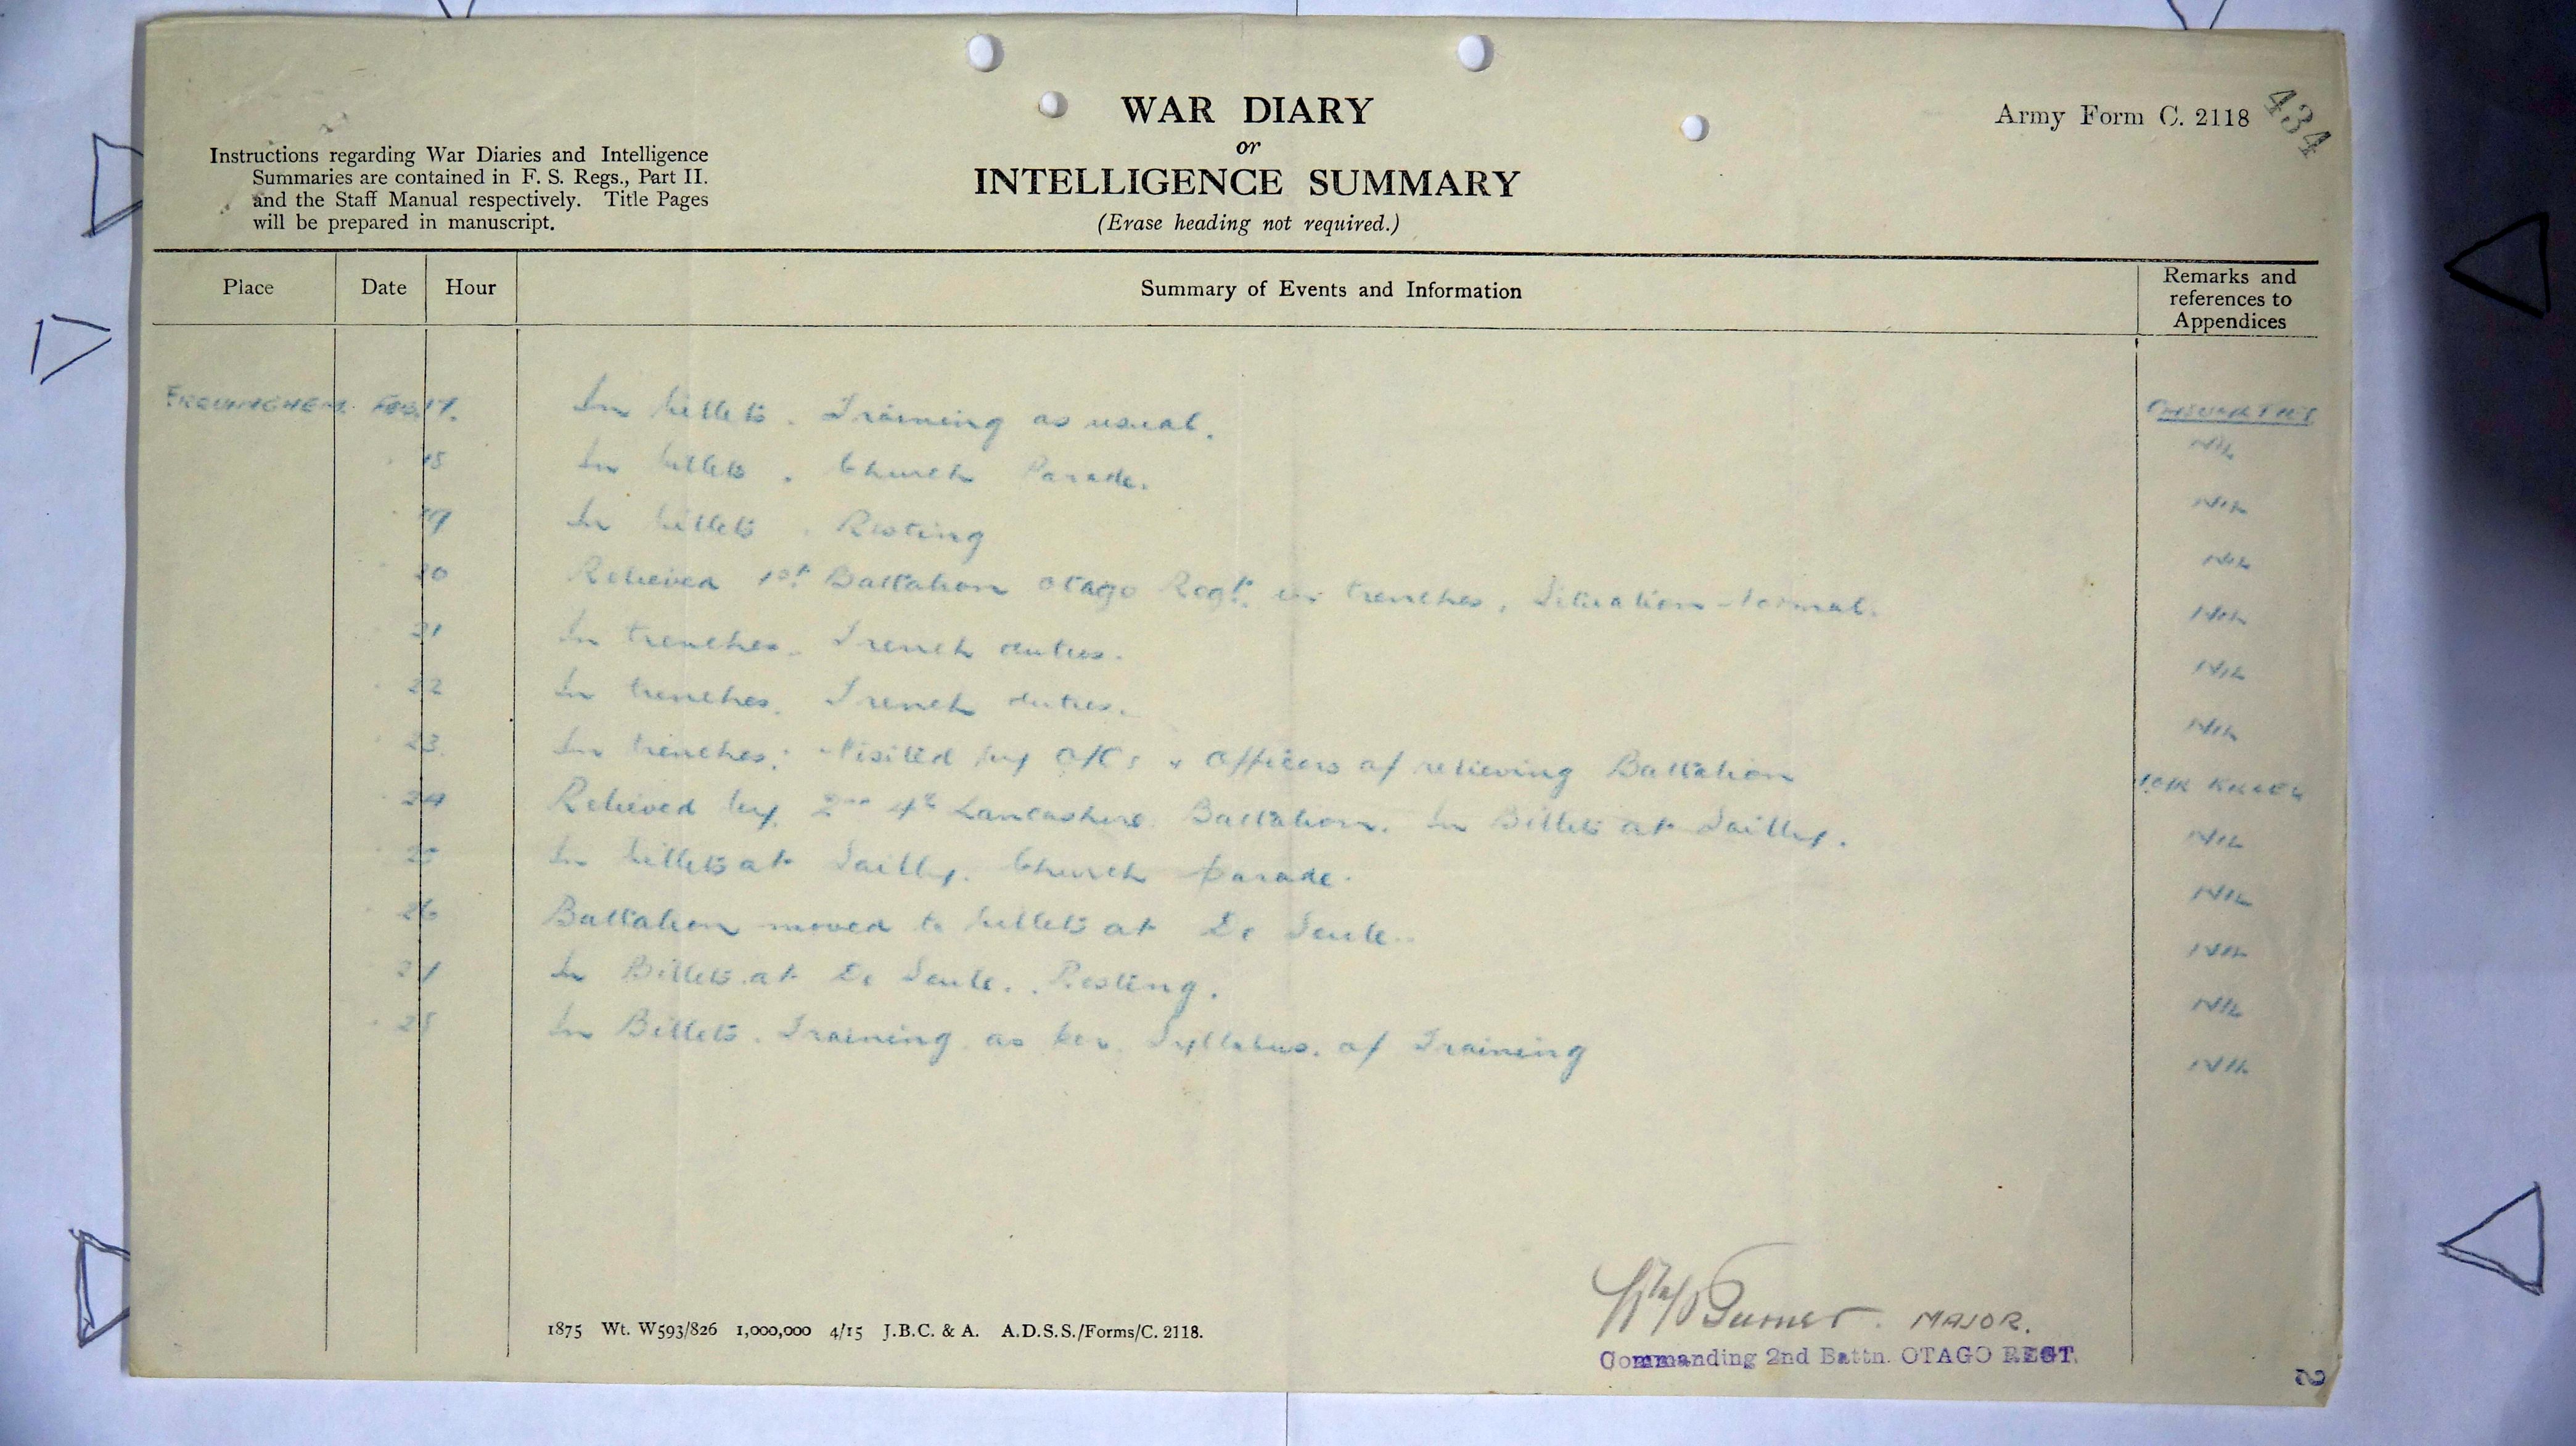 434
Army Form C. 2118
WAR DIARY
or
INTELLIGENCE SUMMARY
(Erase heading not required.)
Instructions regarding War Diaries and Intelligence
Summaries are contained in F. S. Regs., Part II.
and the Staff Manual respectively. Title Pages
will be prepared in manuscript.
Place Date Hour Summary of Events and Information Remarks and references to Appendices
ERQUINGHEM. FEB. 17. In billets. Training as usual. CASUALTIES NIL
18 In billets. Church Parade. NIL
19 In billets. Resting NIL
20 Relieved 1st Battalion Otago Regt. in trenches, Situation Normal. NIL
21 In trenches. Trench duties. NIL
22 In trenches. Trench duties. NIL
23. In trenches. Visited by O/C's & Officers of relieving Battalion
24 Relieved by 2nd 4th Lancashire Battalion. In Billets at Sailly. NIL
25 In billets at Sailly. Church parade. NIL
26 Battalion moved to billets at De Seule. NIL
27 In Billets at De Seule. Resting. NIL
28 In Billets. Training as per Syllabus of Training NIL
MAJOR.
Commanding 2nd Battn. OTAGO REGT.
1875 Wt. W593/826 1,000,000 4/15 J.B.C. & A. A.D.S.S./Forms/C. 2118.
2